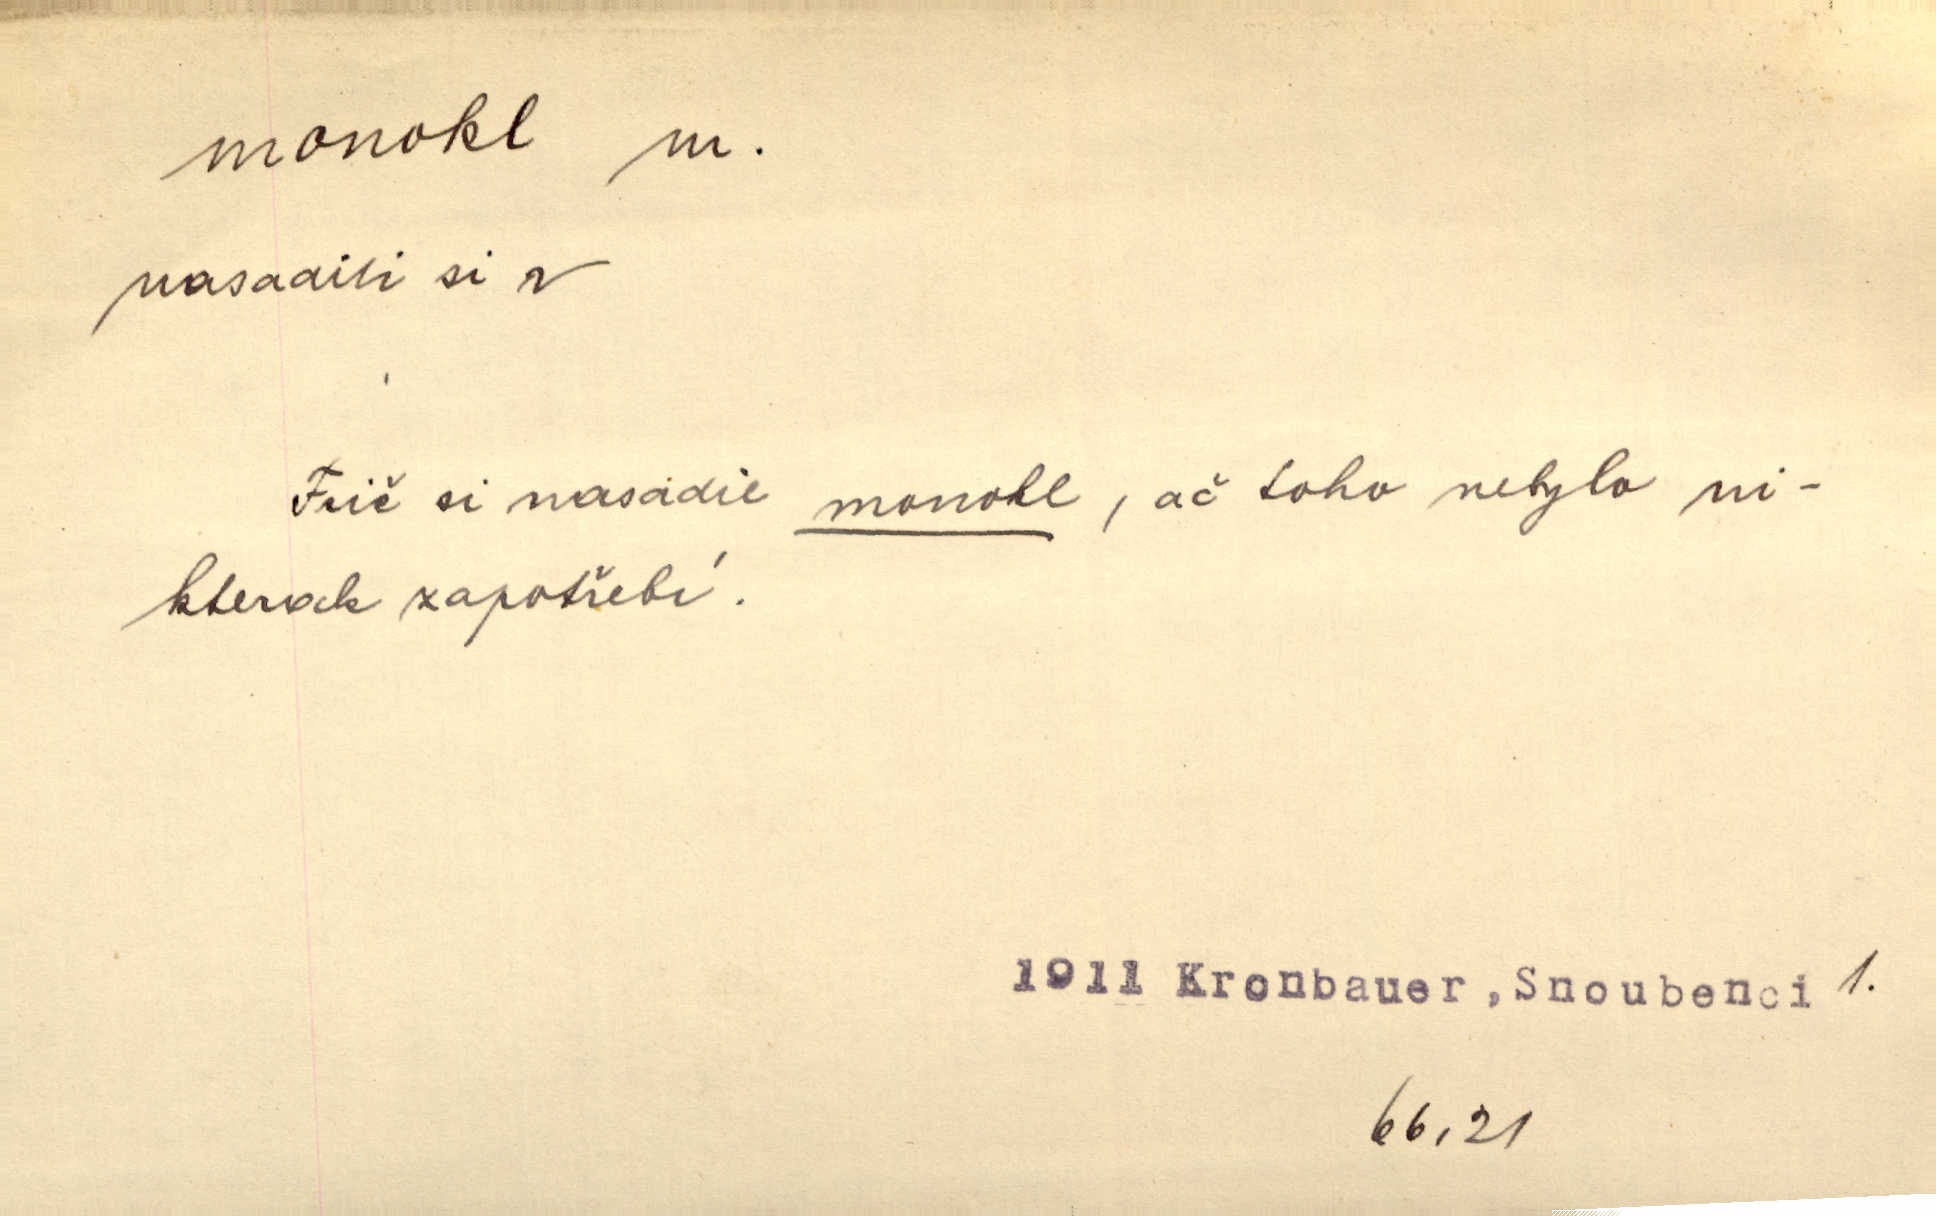 monokl m.
nasaditi si ~
Frič si nasadil monokl, ač toho nebylo ni-
kterak zapotřebí.
1911 Kronbauer, Snoubenci 1.
66,21